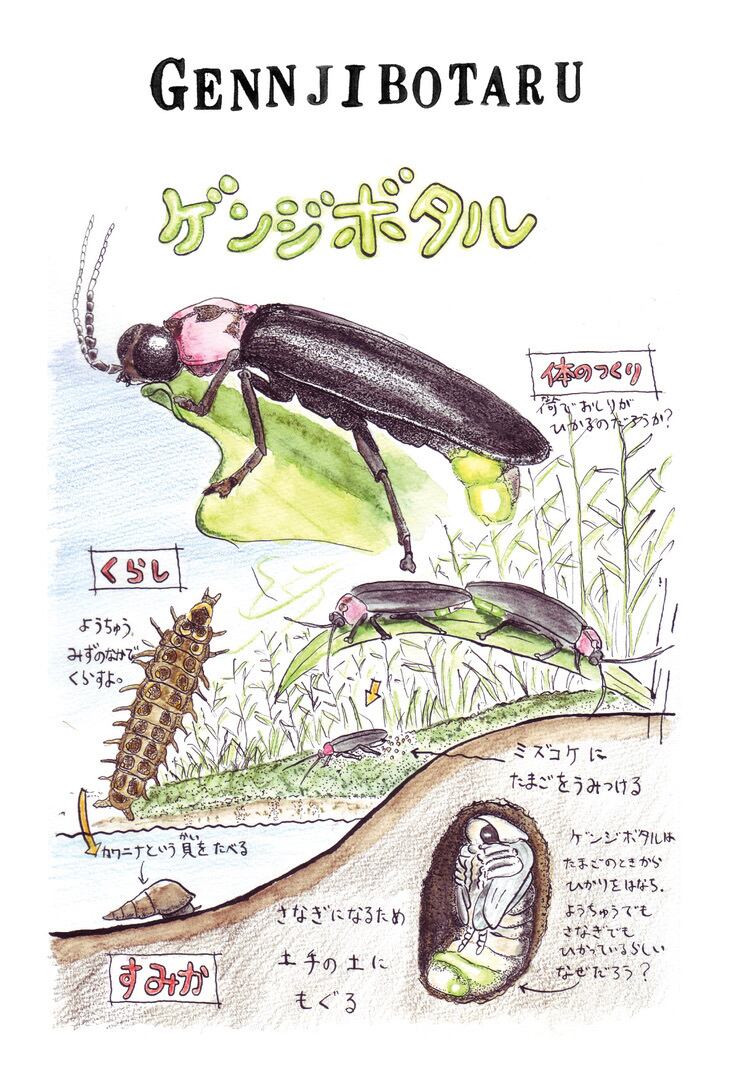 GENNJIBOTARU
ゲンジボタル
体のつくり
何でおしりが
ひかるのだろうか?
くらし
ようちゅう、
みずのなかで
くらすよ。
ミズコケに
たまごをうみつける
カワニナという貝をたべる
かい
ゲンジボタルは
たまごのときから
ひかりをはなち.
ようちゅうでも
さなぎでも
ひかっているらしい
なぜだろう?
さなぎになるため
土手の土に
もぐる
すみか